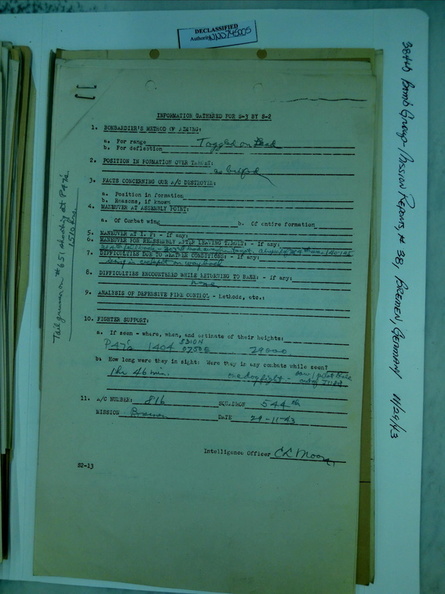 DECLASSIFIED
Authority NND745005
384th Bomb Group - Mission Reports, # 38, Bremen, Germany 11/29/43
INFORMATION GATHERED FOR S-3 BY S-2
1. BOMBARDIER'S METHOD OF AIMING:
a. For range Toggled on Lead
b. For deflection
2. POSITION IN FORMATION OVER TARGET:
as briefed
3. FACTS CONCERNING OUR A/C DESTROYED:
a. Position in formation
b. Reasons, if known
4. MANEUVER AT ASSEMBLY POINT:
a. Of Combat wing b. Of entire formation
5. MANEUVER AT I. P. - If any:
6. MANEUVER FOR REASSEMBLY AFTER LEAVING TARGET: - If any:
7. DIFFICULTIES DUE TO WEATHER CONDITIONS: - If any:
8. DIFFICULTIES ENCOUNTERED WHILE RETURNING TO BASE: - If any:
none
9. ANALYSIS OF DEFENSIVE FIRE CONTROL - Methods, etc.:
10. FIGHTER SUPPORT:
a. If seen - where, when, and estimate of their heights:
P47's 1404 29000
b. How long were they in sight. Were they in any combats while seen?
1 hr 46 min. one dogfight -
11. A/C NUMBER: 816 SQUADRON 544th
MISSION Bremen DATE 29-11-43
Intelligence Officer CL Moore
S2-13
Tail gunner on # 651 shooting at P47s
1510 hrs